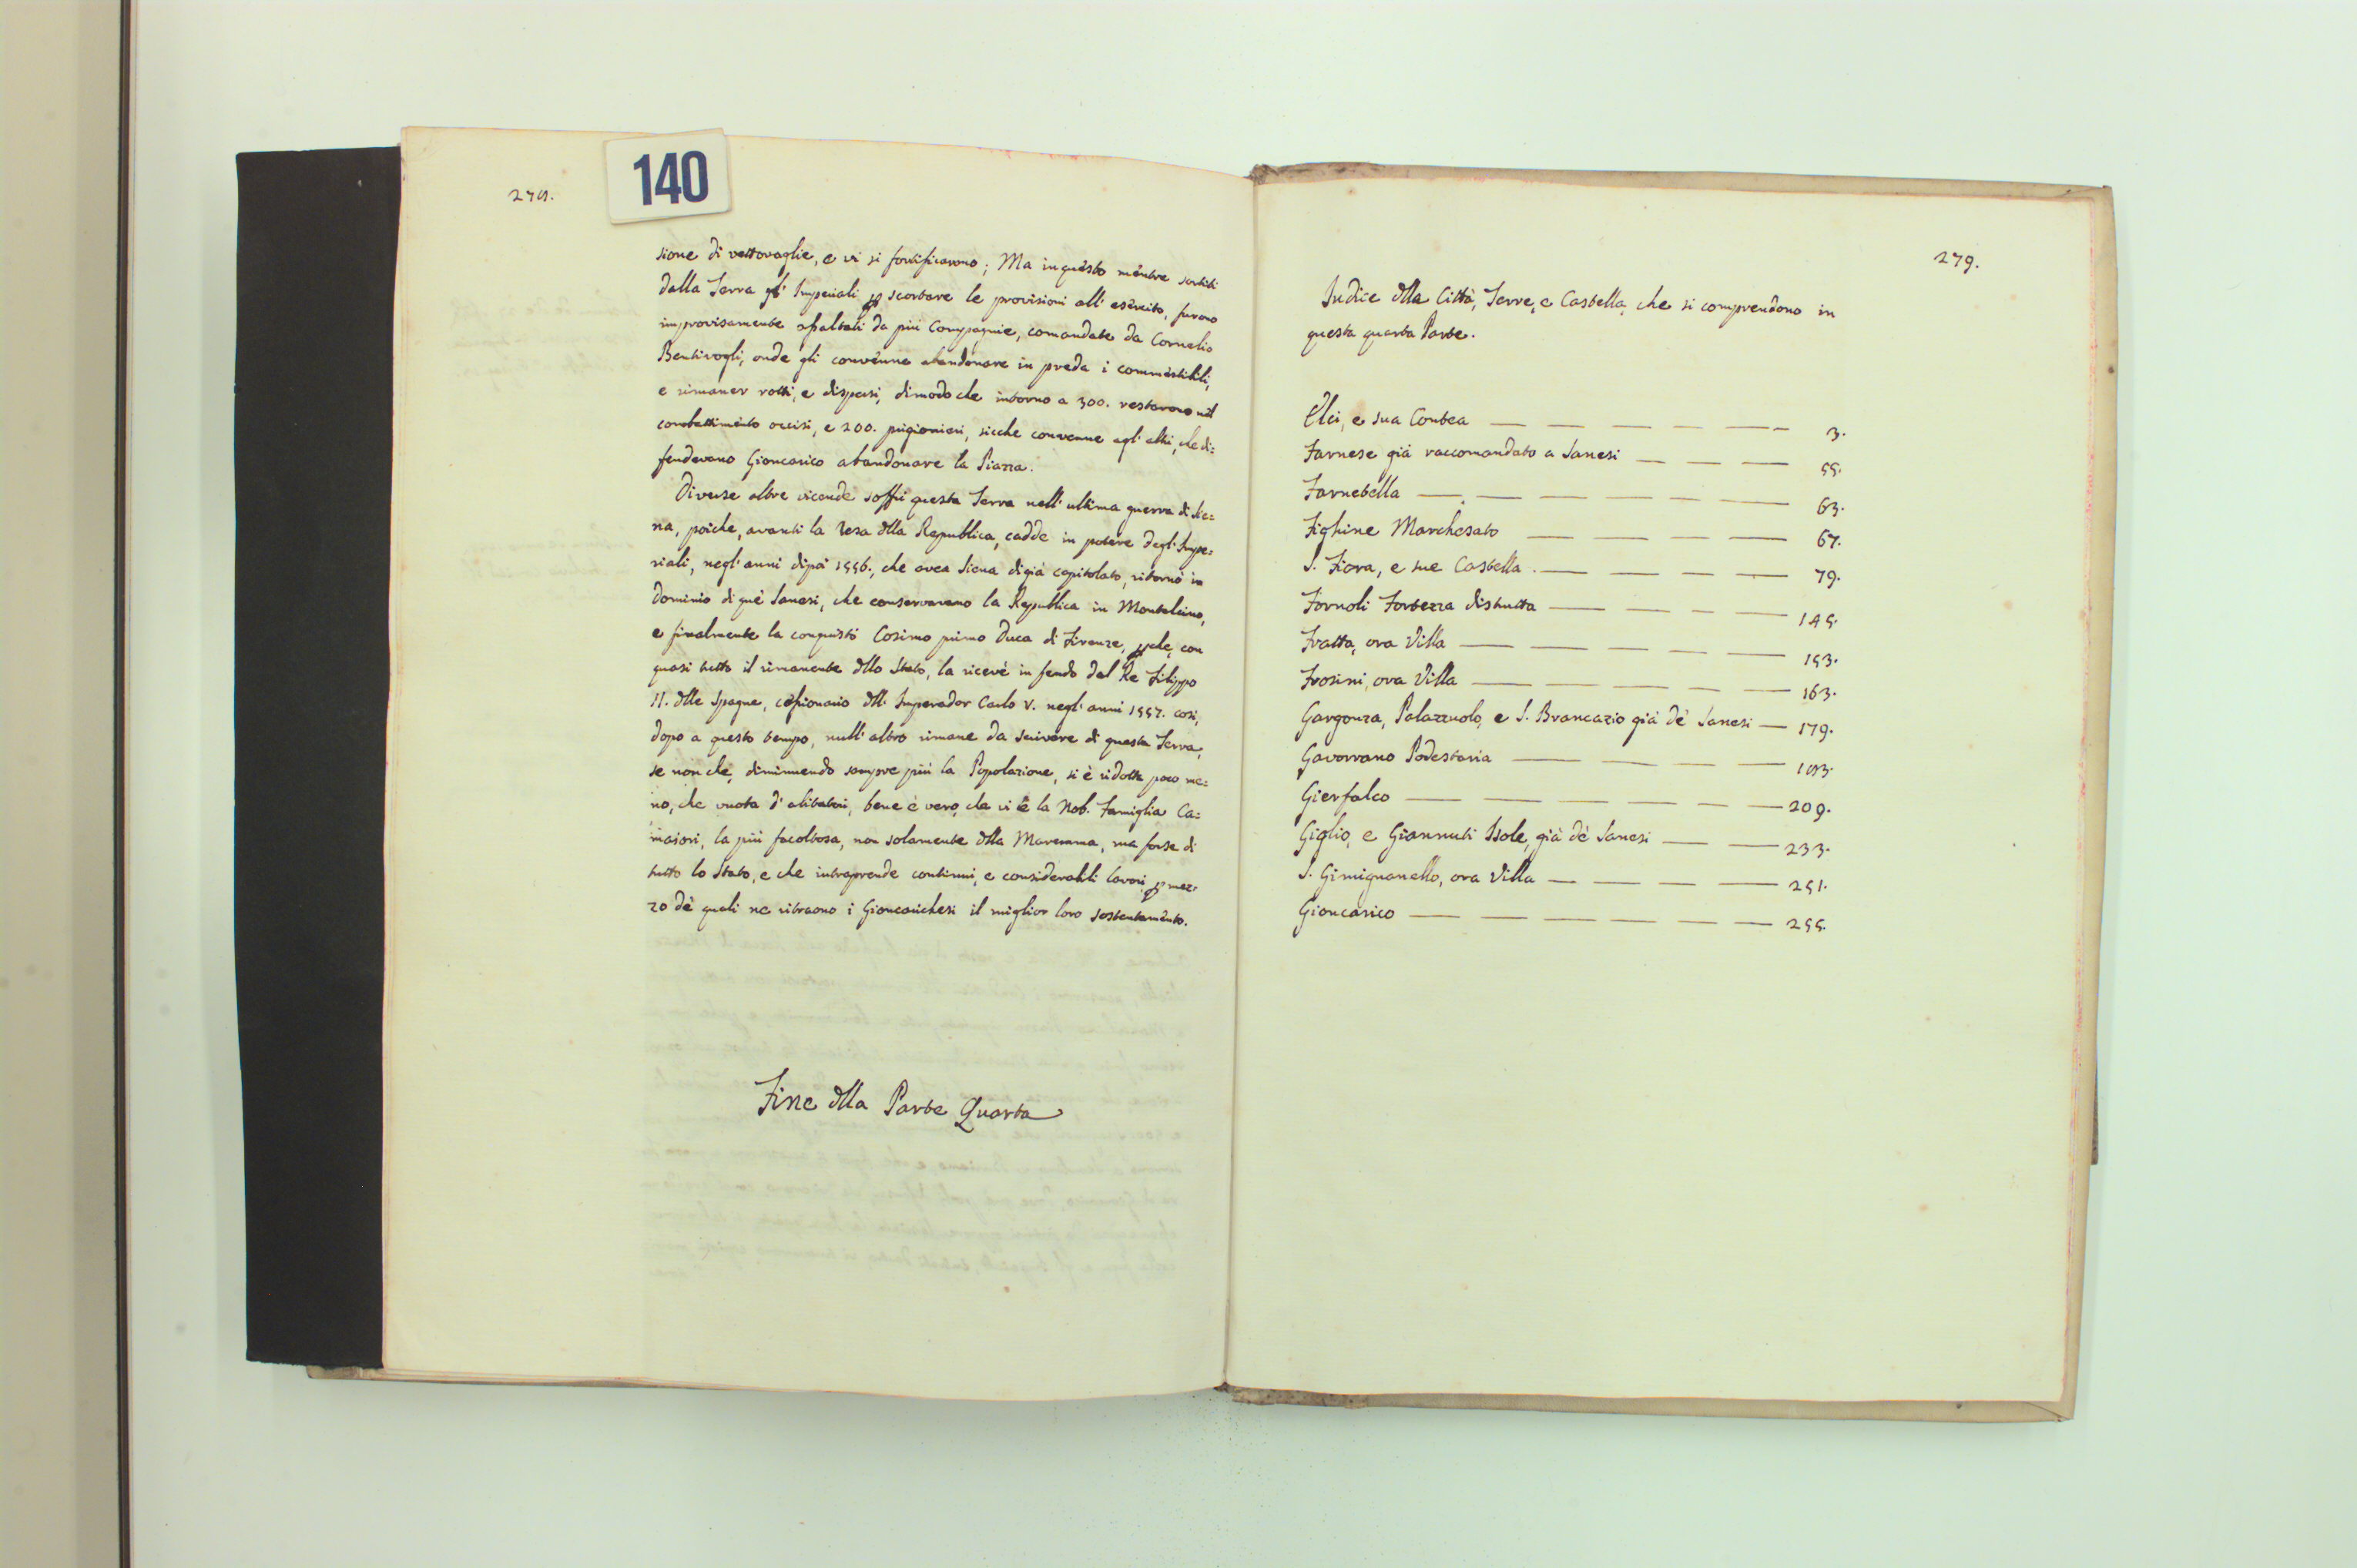 278.
140
sione di vettovaglie, e vi si fortificarono; Ma in questo mentre sortiti
dalla Terra gl' Imperiali p scortare le provisioni all' esercito, furono
improvisamente assaltati da più Compagnie, comandate da Cornelio
Bentivogli, onde gli convenne abandonare in preda i commestibili,
e rimaner rotti, e dispersi, dimodoche intorno a 300. restarono nel
combattimento occisi, e 200. prigionieri, sicche convenne agl' altri, che di=
fendevano Gioncarico abandonare la Piazza.
Diverse altre vicende soffrì questa Terra nell' ultima guerra di Sie=
na, poiche, avanti la resa dlla Republica, cadde in potere degl' Impe=
riali, negl' anni dipoi 1556., che avea Siena digià capitolato, ritornò in
dominio di què Sanesi, che conservarano la Republica in Montalcino,
e finalmente la conquistò Cosimo primo Duca di Firenze, pche, con
quasi tutto il rimanente dllo Stato, la ricevè in feudo dal Re Filippo
II. dlle Spagne, cessionario dll' Imperador Carlo V. negl' anni 1557. così,
dopo a questo tempo, null' altro rimane da scrivere di questa Terra,
se non che, diminuendo sempre più la Popolazione, si è ridotta poco me=
no, che vuota d' abitatori, bene è vero, che vi è la Nob. Famiglia Ca=
maiori, la più facoltosa, non solamente dlla Maremma, ma forse di
tutto lo Stato, e che intraprende continui, e considerabili lavori p mez=
zo dè quali ne ritraono i Gioncarichesi il miglior loro sostentamento.
Fine dlla Parte Quarta
279.
Indice dlla Città, Terre, e Castella, che si comprendono in
questa quarta Parte.
Elci, e sua Contea — — — — — 3.
Farnese già raccomandato a Sanesi — — — 55.
Farnetella — — — — — — 63.
Fighine Marchesato — — — — 67.
S. Fiora, e sue Castella — — — — 79.
Fornoli Fortezza distrutta — — — — 145.
Fratta, ora Villa — — — — — 153.
Frosini, ora Villa — — — — — 163.
Gargonza, Palazzuolo, e S. Brancazio già dè Sanesi — 179.
Gavorrano Podestaria — — — — 183.
Gierfalco — — — — — — 209.
Giglio, e Giannuti Isole, già dè Sanesi — — 233.
S. Gimignanello, ora Villa — — — — 251.
Gioncarico — — — — — — 255.